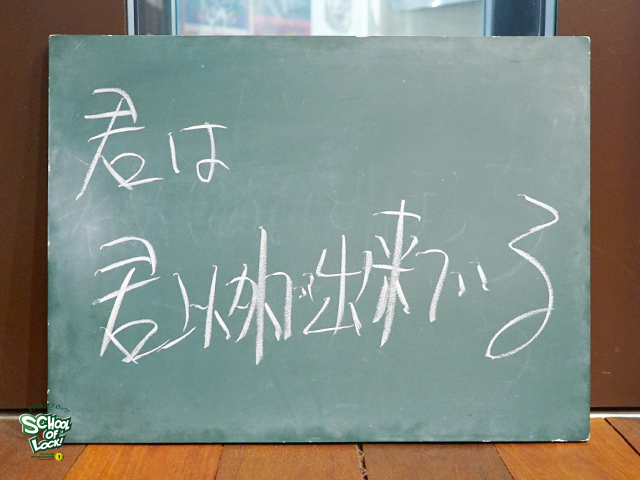 君は
君以外で出来ている
SCHOOL
OF
LOCK!